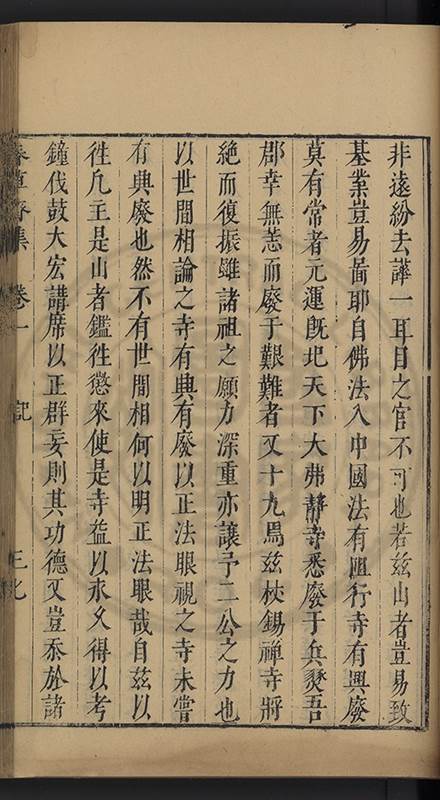 非遠紛去譁一耳目之官不可也若茲山者豈易致
基業豈易啚耶自佛法入中國法有阻行寺有興廢
莫有常者元運旣圯天下大弗靜寺悉廢于兵燹吾
郡幸無恙而廢于艱難者又十九焉茲杖錫禪寺將
絶而復振雖諸祖之願力深重亦讓予二公之力也
以世間相論之寺有興有廢以正法眼視之寺未嘗
有興廢也然不有世間相何以明正法眼哉自茲以
徃凡主是山者鑑徃懲來使是寺益以永久得以考
鐘伐鼓大宏講席以正群妄則其功德又豈忝於諸
春草齋集 卷一 記